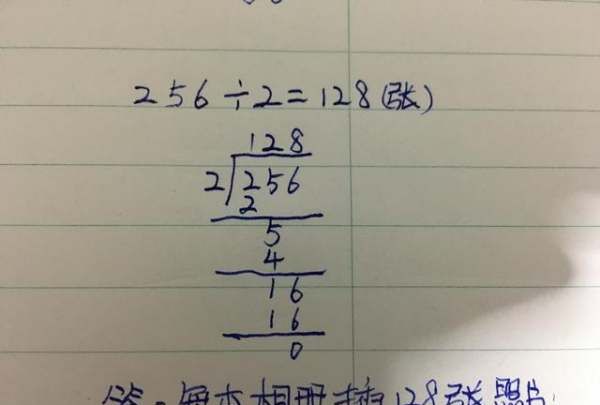 256÷2=128(张)
128
2 256
2
5
4
16
16
0
答:每本相册插128张照片